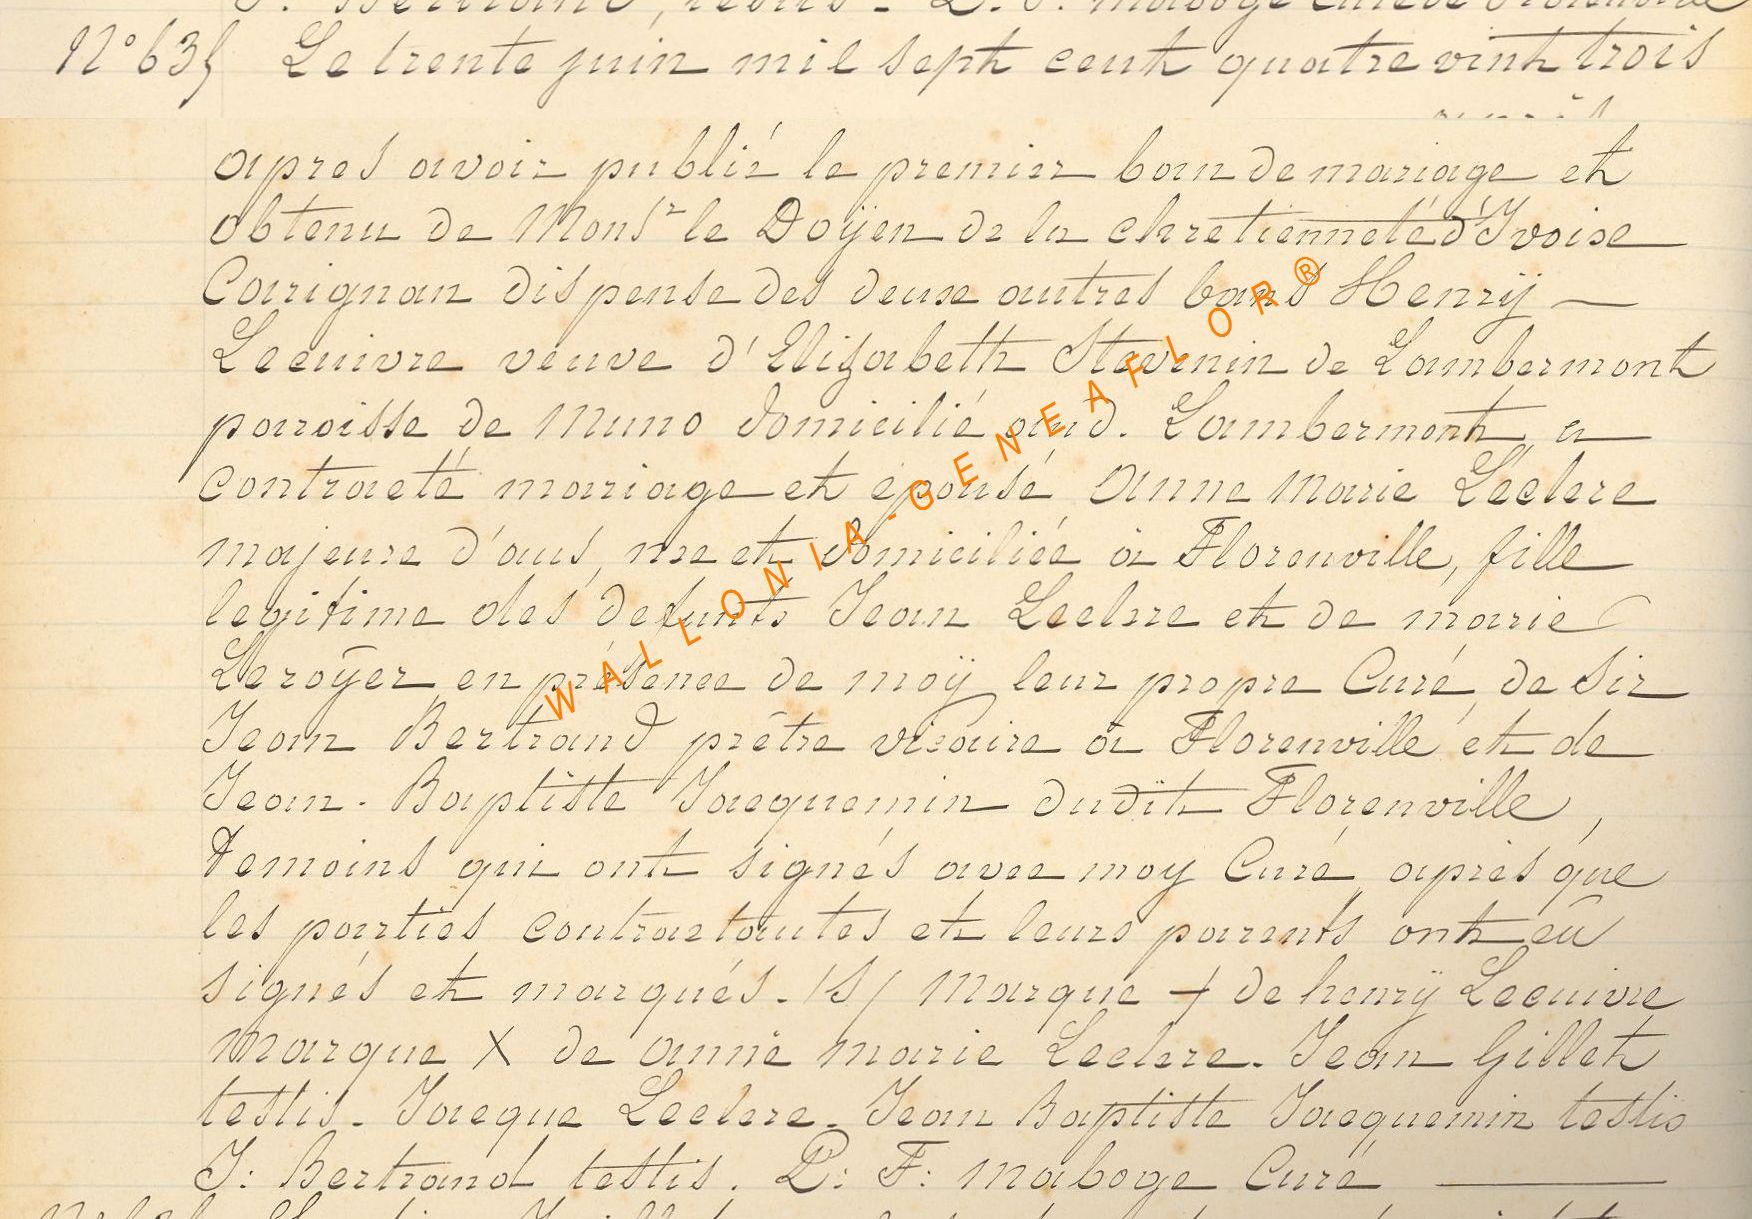 J. Bertrand, testis - L. F. Maboge Curé de Florenville
N° 63} Le trente juin mil sept cent quatre vint trois
apres avoir publié le premier ban de mariage et
obtenu de Monsr le Doÿen de la chretienneté d'Ivoise
Carignan dispense des deux autres bans Henrÿ —
Lecuivre veuve d'Elisabeth Stevenin de Lambermont
paroisse de Muno domicilié aud. Lambermont, a
contracté mariage et épousé Anne Marie Leclere
majeure d'ans, née et domiciliée a Florenville, fille
legitime des defunts Jean Leclere et de marie
Leroÿer en présence de moÿ leur propre Curé, de Sir
Jean Bertrand prêtre vicaire a Florenville et de
Jean-Baptiste Jacquemin dudit Florenville,
temoins qui ont signés avec moy Curé après que
les parties contractantes et leurs parents ont eû
signés et marqués. /S/ Marque + de henrÿ Lecuivre
marque X de anne marie Leclere. Jean Gillet
testis. Jacque Leclere. Jean Baptiste Jacquemin testis
J: Bertrand testis. L: F: Maboge Curé —
WALLONIA-GENEAFLOR®